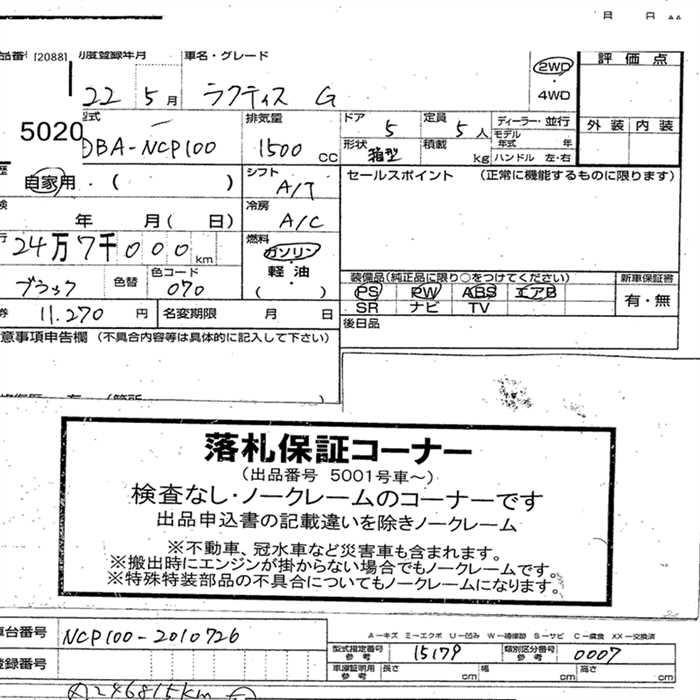 月 日
品番 [2088] 初度登録年月 車名・グレード
22 5月 ラクティス G
2WD
4WD
評価点
外装 内装
5020
型式 排気量
DBA-NCP100 1500 CC
ドア 5 定員 5人 ディーラー・並行
形状 箱型 積載 kg モデル年式 年
ハンドル 左・右
歴 自家用・( ) シフト A/T
セールスポイント (正常に機能するものに限ります)
検 年 月( 日) 冷房 A/C
行 24万7千000km 燃料 ガソリン・軽油 ( )
ブラック 色替 色コード 070
装備品(純正品に限り○をつけてください) 新車保証書
PS PW ABS エアB 有・無
SR ナビ TV
券 11,270 円 名変期限 月 日
後日品
意事項申告欄 (不具合内容等は具体的に記入して下さい)
落札保証コーナー
(出品番号 5001号車〜)
検査なし・ノークレームのコーナーです
出品申込書の記載違いを除きノークレーム
※不動車、冠水車など災害車も含まれます。
※搬出時にエンジンが掛からない場合でもノークレームです。
※特殊特装部品の不具合についてもノークレームになります。
車台番号 NCP100-2010726
A−キズ ミ−エクボ U−凹み W−補修跡 S−サビ C−腐食 XX−交換済
型式指定番号 参考 15179 類別区分番号 参考 0007
登録番号
車庫証明用 参考 長さ cm 幅 cm 高さ cm
246815km